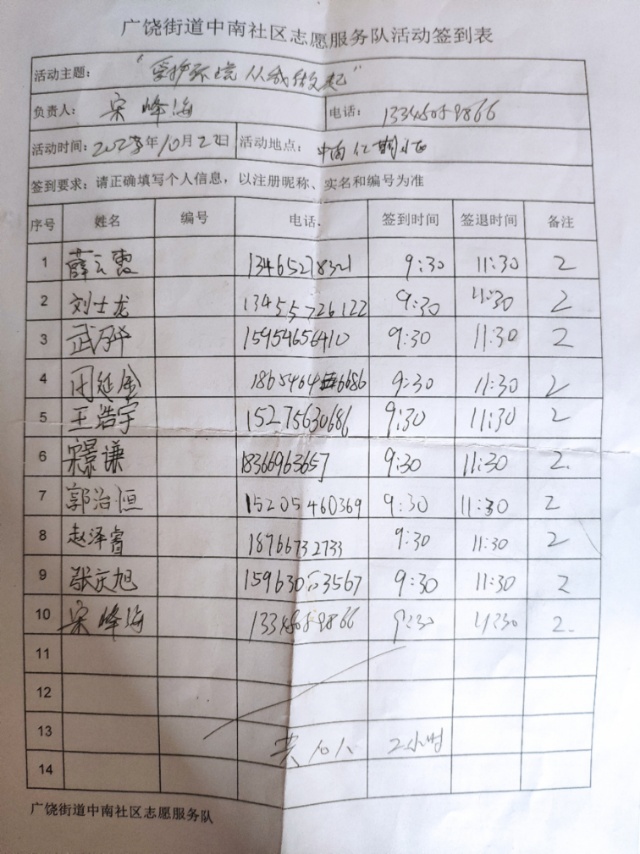 广饶街道中南社区志愿服务队活动签到表
活动主题： “爱护环境 从我做起”
负责人： 宋峰海 电话： 13345059866
活动时间：2023年10月2日 活动地点： 中南
签到要求：请正确填写个人信息，以注册昵称、实名和编号为准
序号 姓名 编号 电话. 签到时间 签退时间 备注
1 薛云霞 13465278321 9:30 11:30 2
2 刘士龙 13455726122 9:30 11:30 2
3 15954656410 9:30 11:30 2
4 闫延金 9:30 11:30 2
5 王浩宇 15275630686 9:30 11:30 2
6 宋景谦 18366963657 9:30 11:30 2.
7 郭治恒 15205460369 9:30 11:30 2
8 赵泽睿 18766732733 9:30 11:30 2
9 张庆旭 15963003567 9:30 11:30 2
10 宋峰海 13345059866 9:30 11:30 2.
11
12
13 共10人 2小时
14
广饶街道中南社区志愿服务队